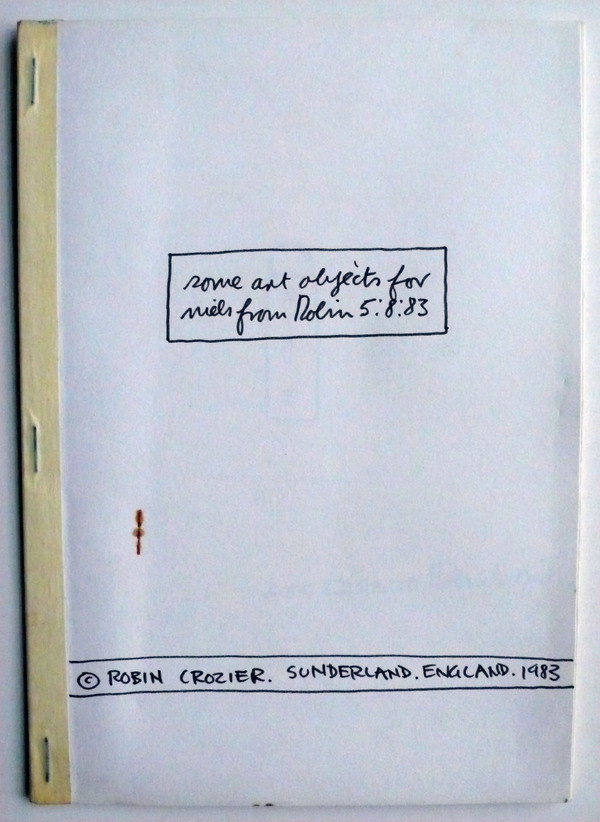 some art objects for
niels from Robin 5:8:83
© ROBIN CROZIER. SUNDERLAND. ENGLAND. 1983